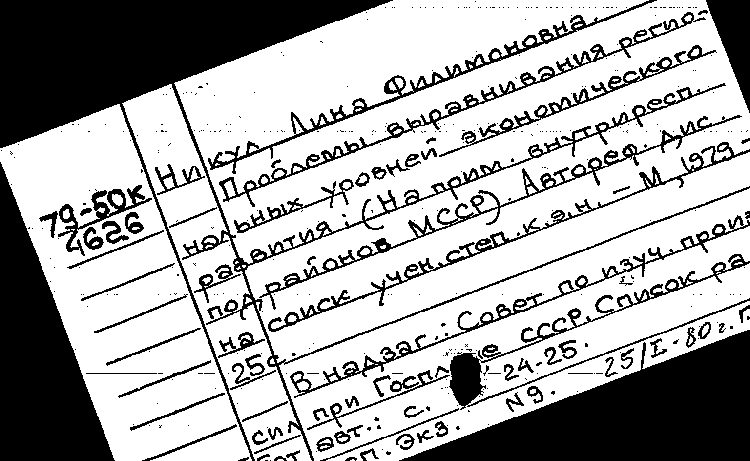 79-50к
4626
Никул, Лина Филимоновна.
Проблемы выравнивания регио-
нальных уровней экономического
развития: (На прим. внутриресп.
под районов МССР). Автореф. дис.
на соиск. учен. степ. к.э.н. - М, 1979 -
25с.
В надзаг.: Совет по изуч. произ
сил при СССР. Список ра
авт.: с. 24-25.
Экз. N9. 25/I-80г.